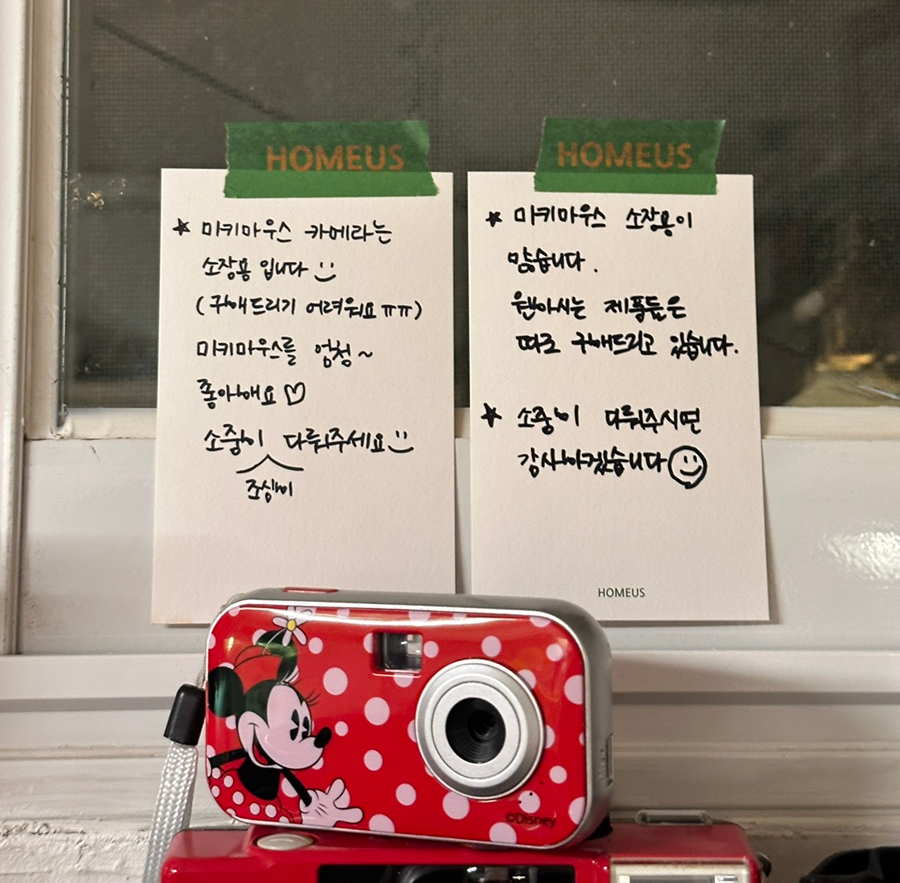 HOMEUS
★ 미키마우스 카메라는
소장용 입니다 :)
(구해드리기 어려워요 ㅠㅠ)
미키마우스를 엄청~
좋아해요 ♡
소중히 다뤄주세요 :)
조심히
HOMEUS
★ 미키마우스 소장용이
많습니다.
원하시는 제품들은
따로 구해드리고 있습니다.
★ 소중히 다뤄주시면
감사하겠습니다 ☺
HOMEUS
©Disney